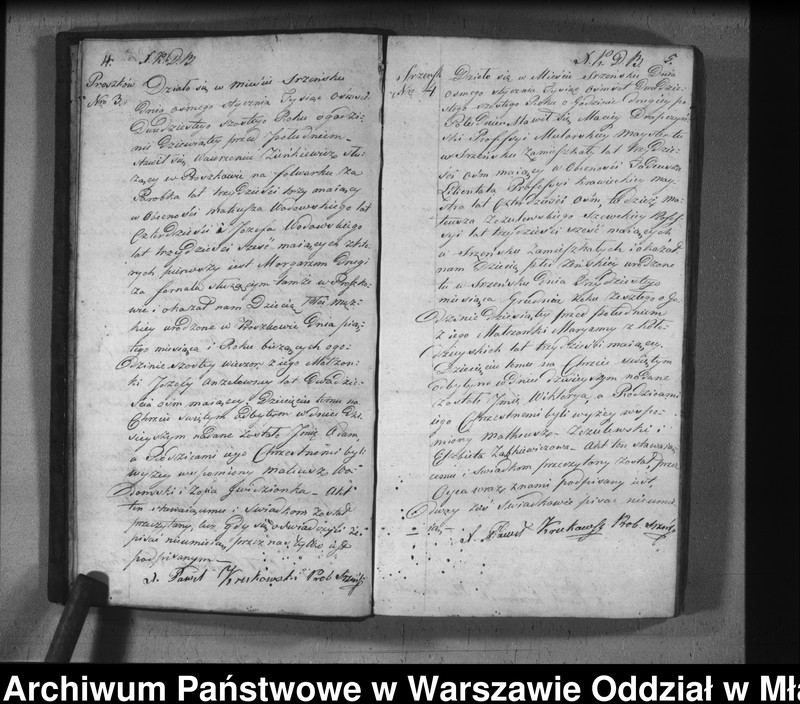 4.
Proszków
Nro 3.
Działo się w mieście Strzeńsku
Dnia osmego stycznia Tysiąc osmset
Dwudziestego szostego Roku o godzi-
nie dziewiątey przed południem
stawił się Wawrzeniec Zieńkiewicz słu-
żący w Proszkowie na folwarku za
Parobka lat trzydzieści trzy maiący
w Obecności Mateusza Wodowskiego lat
Czterdzieści i Jozefa Wodowskiego
lat trzydzieści sześć maiących z któ-
rych pierwszy iest Drugi
za fornala służącym tamże w Proszko-
wie i okazał nam Dziecię Płci męz-
kiey urodzone w Proszkowie Dnia pią-
tego miesiąca i Roku bieżących o go-
dzinie szostey wieczor z iego Małżon-
ki Jozefy lat Dwadzie-
ścia osm maiącey Dziecięciu temu na
Chrzcie świętym odbytym w dniu dzi-
sieyszym nadane zostało Jmię Adam
a Rodzicami iego Chrzestnemi byli
wyżey wspomniony Mateusz Wo-
dowski i Zofia Akt
ten stawaiącemu i świadkom został
przeczytany, lecz gdy się oświadczyli że
pisać nieumieią przez nas tylko iest
podpisanym
X. Paweł Kreskowski Prob
5.
Nro 4
Działo się w Mieście Strzeńsku Dnia
osmego stycznia Tysiąc osmset Dwudzie-
stego szostego Roku o Godzinie Drugiey po
Południu Stawił się Maciey
Proffesyi Mularskiey maystr tu
w Strzeńsku zamieszkały lat trzydzie-
ści osm maiący w Obecności Tadeusza
Proffesyi krawieckiey may-
stra lat Czterdzieści osm tudzież Ma-
teusza Zezulewskiego Szewckiey Proffe-
syi lat trzydzieści sześć maiących
w Strzeńsku zamieszkałych i okazał
nam Dziecię płci żeńskiey urodzone
tu w Strzeńsku Dnia Trzydziestego
miesiąca Grudnia Roku zeszłego o Go-
dzinie Dziesiątey przed południem
z iego Małżonki Maryanny z
lat trzydzieści maiącey.
Dziecięciu temu na Chrzcie świętym
odbytym w dniu dzisieyszym nadane
zostało Jmię Wiktorya, a Rodzicami
iego Chrzestnemi byli wyżey wspo-
mniony Matheusz Zezulewski i
Elżbieta Akt ten stawaią-
cemu i świadkom przeczytany został, przez
Oyca wraz z nami podpisany iest,
Dway zaś świadkowie pisać nieumie-
ią
X. Paweł Kreskowski Prob
Archiwum Państwowe w Warszawie Oddział w Mła